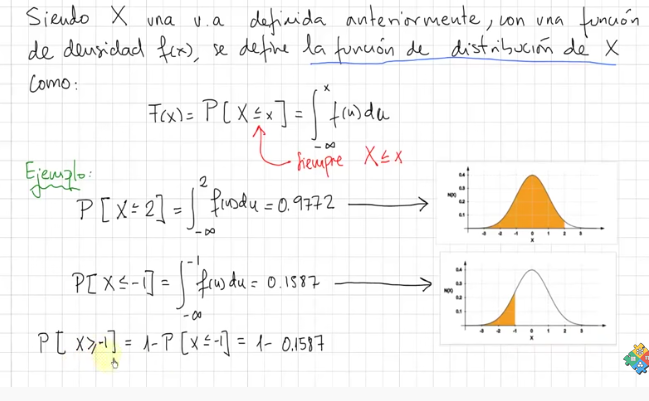 Siendo X una v.a definida anteriormente, con una función
de densidad f(x), se define la función de distribución de X
como:
F(x) = P[X ≤ x] = ∫_{-∞}^{x} f(u)du
Siempre X ≤ x
Ejemplo:
P[X ≤ 2] = ∫_{-∞}^{2} f(u)du = 0.9772
P[X ≤ -1] = ∫_{-∞}^{-1} f(u)du = 0.1587
P[X ≥ -1] = 1 - P[X ≤ -1] = 1 - 0.1587